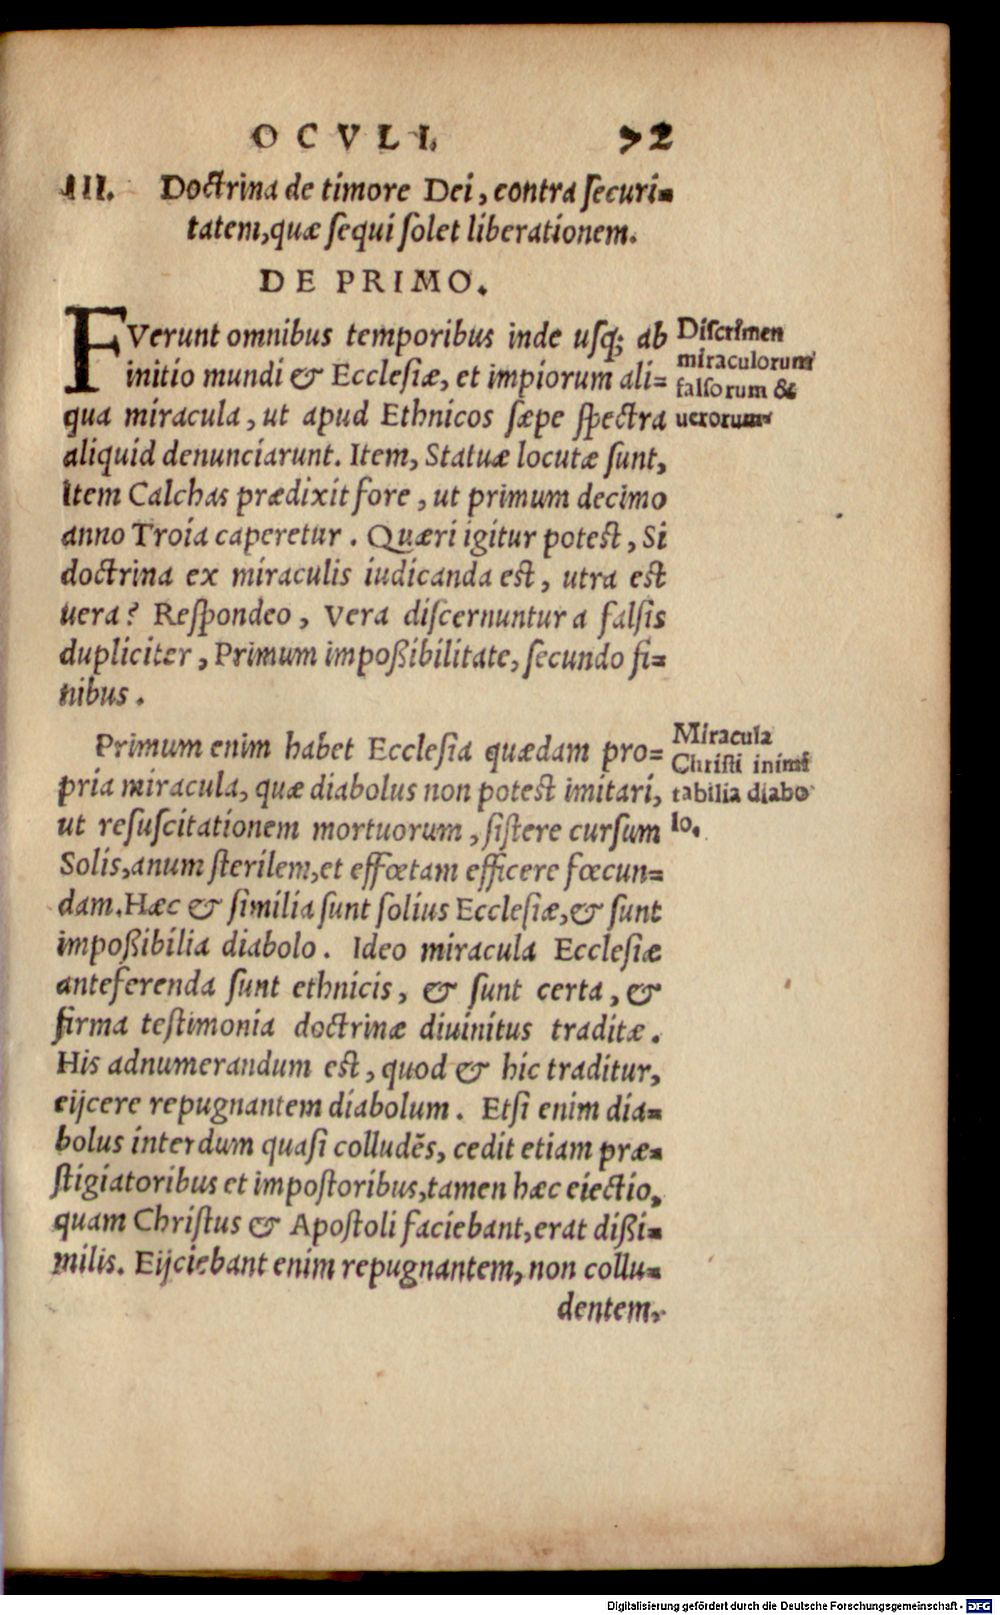 OCVLI. 72
III. Doctrina de timore Dei, contra securi=
tatem, quæ sequi solet liberationem.
DE PRIMO.
FVerunt omnibus temporibus inde usq; ab
initio mundi & Ecclesiæ, et impiorum ali=
qua miracula, ut apud Ethnicos sæpe spectra
aliquid denunciarunt. Item, Statuæ locutæ sunt,
Item Calchas prædixit fore, ut primum decimo
anno Troia caperetur. Quæri igitur potest, Si
doctrina ex miraculis iudicanda est, utra est
uera? Respondeo, Vera discernuntur a falsis
dupliciter, Primum impoßibilitate, secundo fi=
nibus.
Discrimen
miraculorum
falsorum &
uerorum.
Primum enim habet Ecclesia quædam pro=
pria miracula, quæ diabolus non potest imitari,
ut resuscitationem mortuorum, sistere cursum
Solis, anum sterilem, et effœtam efficere fœcun=
dam. Hæc & similia sunt solius Ecclesiæ, & sunt
impoßibilia diabolo. Ideo miracula Ecclesiæ
anteferenda sunt ethnicis, & sunt certa, &
firma testimonia doctrinæ diuinitus traditæ.
His adnumerandum est, quod & hic traditur,
eijcere repugnantem diabolum. Etsi enim dia=
bolus interdum quasi colludēs, cedit etiam præ=
stigiatoribus et impostoribus, tamen hæc eiectio,
quam Christus & Apostoli faciebant, erat dißi=
milis. Eijciebant enim repugnantem, non collu=
dentem.
Miracula
Christi inimi
tabilia diabo
lo.
Digitalisierung gefördert durch die Deutsche Forschungsgemeinschaft - DFG